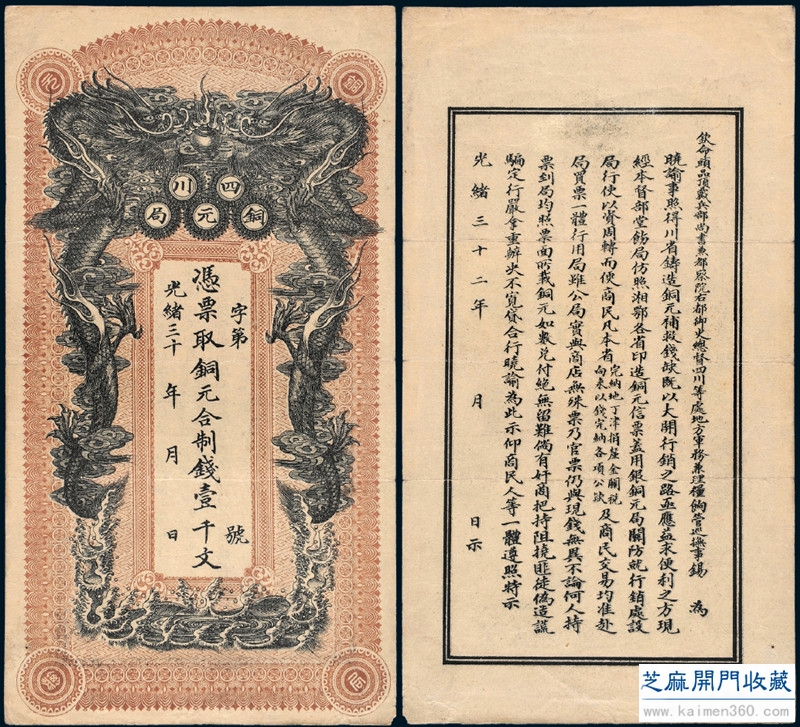 銅元
四川
銅元局
字第 號
憑票取銅元合制錢壹千文
光緒三十 年 月 日
欽命頭品頂戴兵部尚書兼都察院右都御史總督四川等處地方軍務兼理糧餉管巡撫事錫 為
曉諭事照得川省鑄造銅元補救錢缺既以大開行銷之路亟應益求便利之方現
經本督部堂飭局仿照湘鄂各省印造銅元信票蓋用銀銅元局關防就行銷處設
局行使以資周轉而便商民凡本省完納地丁津捐釐金關稅向來以錢完納各項公款及商民交易均准赴
局買票一體行用局雖公局實與商店無殊票乃官票仍與現錢無異不論何人持
票到局均照票面所載銅元如數兌付絕無留難倘有奸商把持阻撓匪徒偽造謊
騙定行嚴拿重辦決不寬貸合行曉諭為此示仰商民人等一體遵照特示
光緒三十二年 月 日示
芝麻開門收藏
www.kaimen360.com